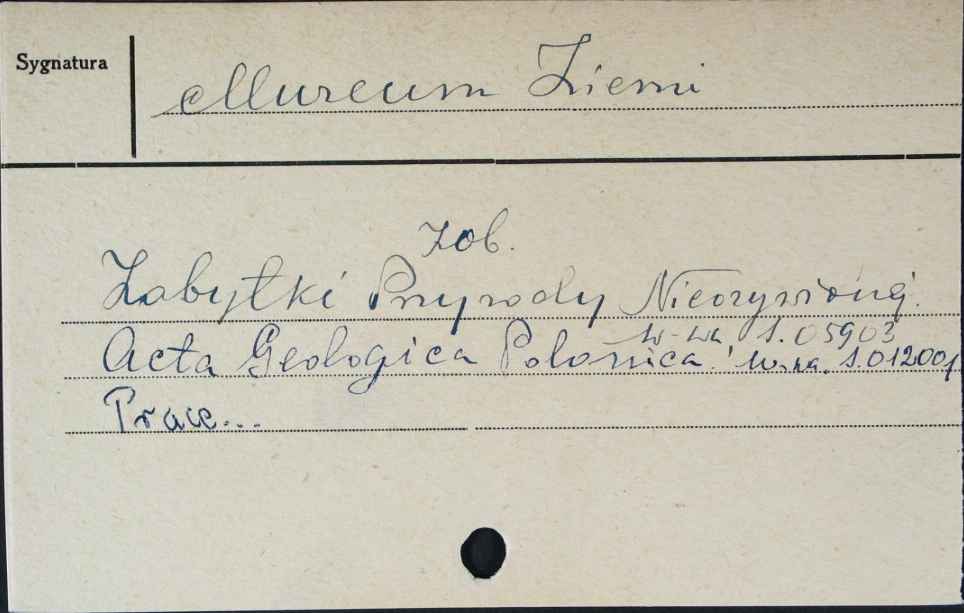 Sygnatura
Muzeum Ziemi
zob.
Zabytki Przyrody Nieożywionej.
W-wa S. 05903
Acta Geologica Polonica! W-wa. S.01200
Prace...